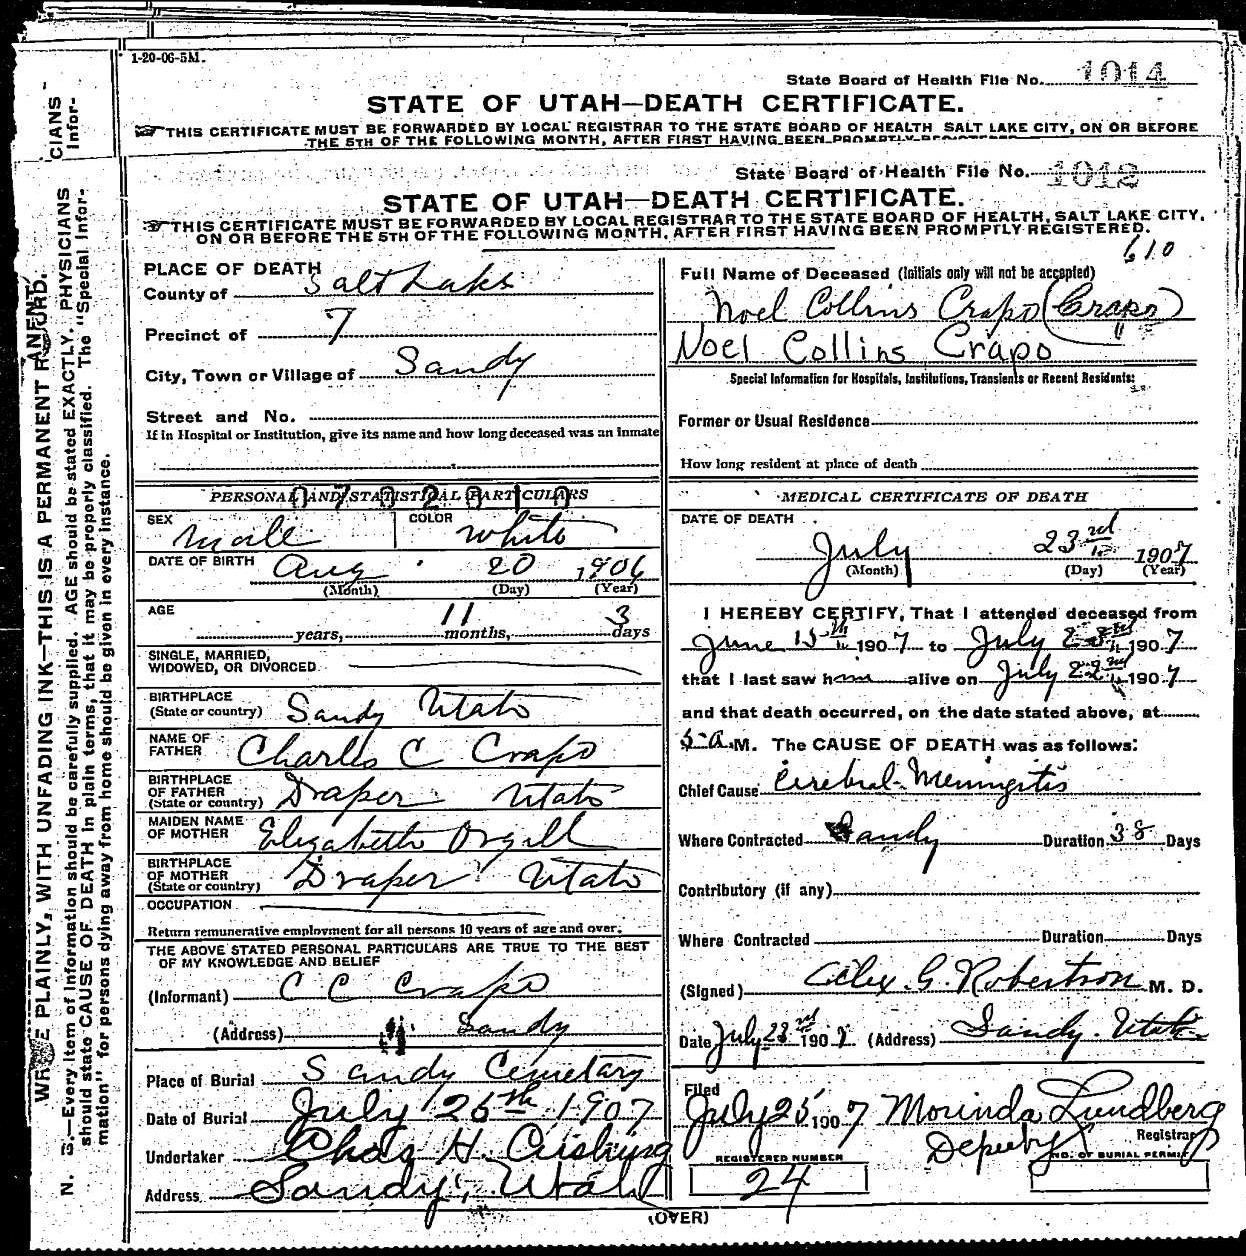 1-20-06-5M.
State Board of Health File No. 1014
STATE OF UTAH—DEATH CERTIFICATE.
THIS CERTIFICATE MUST BE FORWARDED BY LOCAL REGISTRAR TO THE STATE BOARD OF HEALTH SALT LAKE CITY, ON OR BEFORE
THE 5TH OF THE FOLLOWING MONTH, AFTER FIRST HAVING BEEN PROMPTLY REGISTERED
State Board of Health File No. 1012
STATE OF UTAH—DEATH CERTIFICATE.
THIS CERTIFICATE MUST BE FORWARDED BY LOCAL REGISTRAR TO THE STATE BOARD OF HEALTH, SALT LAKE CITY,
ON OR BEFORE THE 5TH OF THE FOLLOWING MONTH, AFTER FIRST HAVING BEEN PROMPTLY REGISTERED.
610
PLACE OF DEATH
County of Salt Lake
Precinct of 7
City, Town or Village of Sandy
Street and No.
If in Hospital or Institution, give its name and how long deceased was an inmate
PERSONAL AND STATISTICAL PARTICULARS
SEX Male COLOR White
DATE OF BIRTH Aug 20 1906
(Month) (Day) (Year)
AGE 11 3
years, months, days
SINGLE, MARRIED,
WIDOWED, OR DIVORCED
BIRTHPLACE
(State or country) Sandy Utah
NAME OF
FATHER Charles C Crapo
BIRTHPLACE
OF FATHER
(State or country) Draper Utah
MAIDEN NAME
OF MOTHER Elizabeth Orgill
BIRTHPLACE
OF MOTHER
(State or country) Draper Utah
OCCUPATION
Return remunerative employment for all persons 10 years of age and over.
THE ABOVE STATED PERSONAL PARTICULARS ARE TRUE TO THE BEST
OF MY KNOWLEDGE AND BELIEF
(Informant) C C Crapo
(Address) Sandy
Place of Burial Sandy Cemetary
Date of Burial July 25th 1907
Undertaker Chas H. Cushing
Address Sandy, Utah
Full Name of Deceased (Initials only will not be accepted)
Noel Collins Crapo (Crapo)
Noel Collins Crapo
Special Information for Hospitals, Institutions, Transients or Recent Residents:
Former or Usual Residence
How long resident at place of death
MEDICAL CERTIFICATE OF DEATH
DATE OF DEATH
July 23rd 1907
(Month) (Day) (Year)
I HEREBY CERTIFY, That I attended deceased from
June 15th 1907 to July 23rd 1907
that I last saw him alive on July 22nd 1907
and that death occurred, on the date stated above, at
5 A.M. The CAUSE OF DEATH was as follows:
Chief Cause Cerebral Meningitis
Where Contracted Sandy Duration 38 Days
Contributory (if any)
Where Contracted Duration Days
(Signed) Alex. G. Robertson M. D.
Date July 23rd 1907 (Address) Sandy. Utah
Filed
July 25 1907 Morinda Lundberg
Depeuty Registrar
REGISTERED NUMBER
24
NO. OF BURIAL PERMIT
(OVER)
CIANS
Infor-
WRITE PLAINLY, WITH UNFADING INK—THIS IS A PERMANENT RECORD.
N. B.—Every item of information should be carefully supplied. AGE should be stated EXACTLY. PHYSICIANS
should state CAUSE OF DEATH in plain terms, that it may be properly classified. The "Special Infor-
mation" for persons dying away from home should be given in every instance.